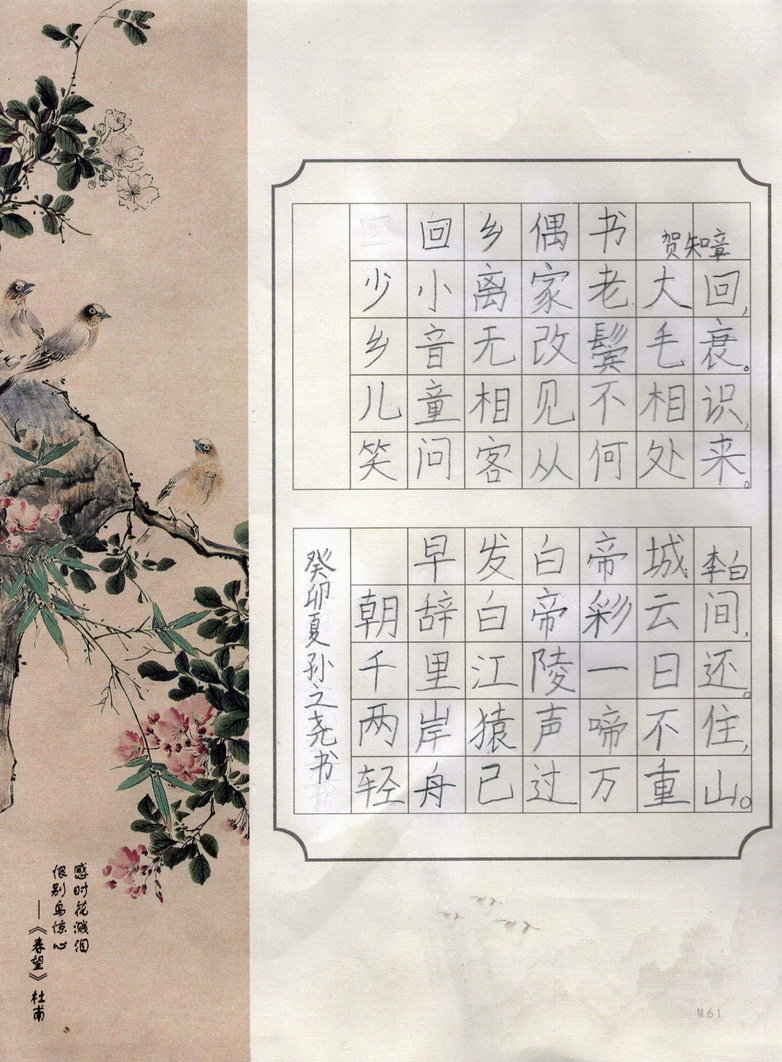 回乡偶书 贺知章
少小离家老大回,
乡音无改鬓毛衰。
儿童相见不相识,
笑问客从何处来。
早发白帝城 李白
朝辞白帝彩云间,
千里江陵一日还。
两岸猿声啼不住,
轻舟已过万重山。
癸卯夏孙之尧书
感时花溅泪
恨别鸟惊心
——《春望》杜甫
M61